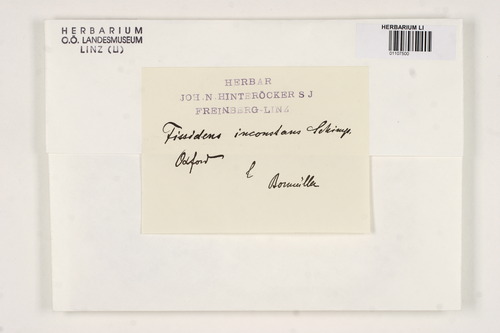 HERBARIUM
O.Ö. LANDESMUSEUM
LINZ (LI)
HERBARIUM LI
01107500
HERBAR
JOH. N. HINTERÖCKER S J
FREINBERG-LINZ
Fissidens inconstans Schimp.
Oxford
Bornmüller